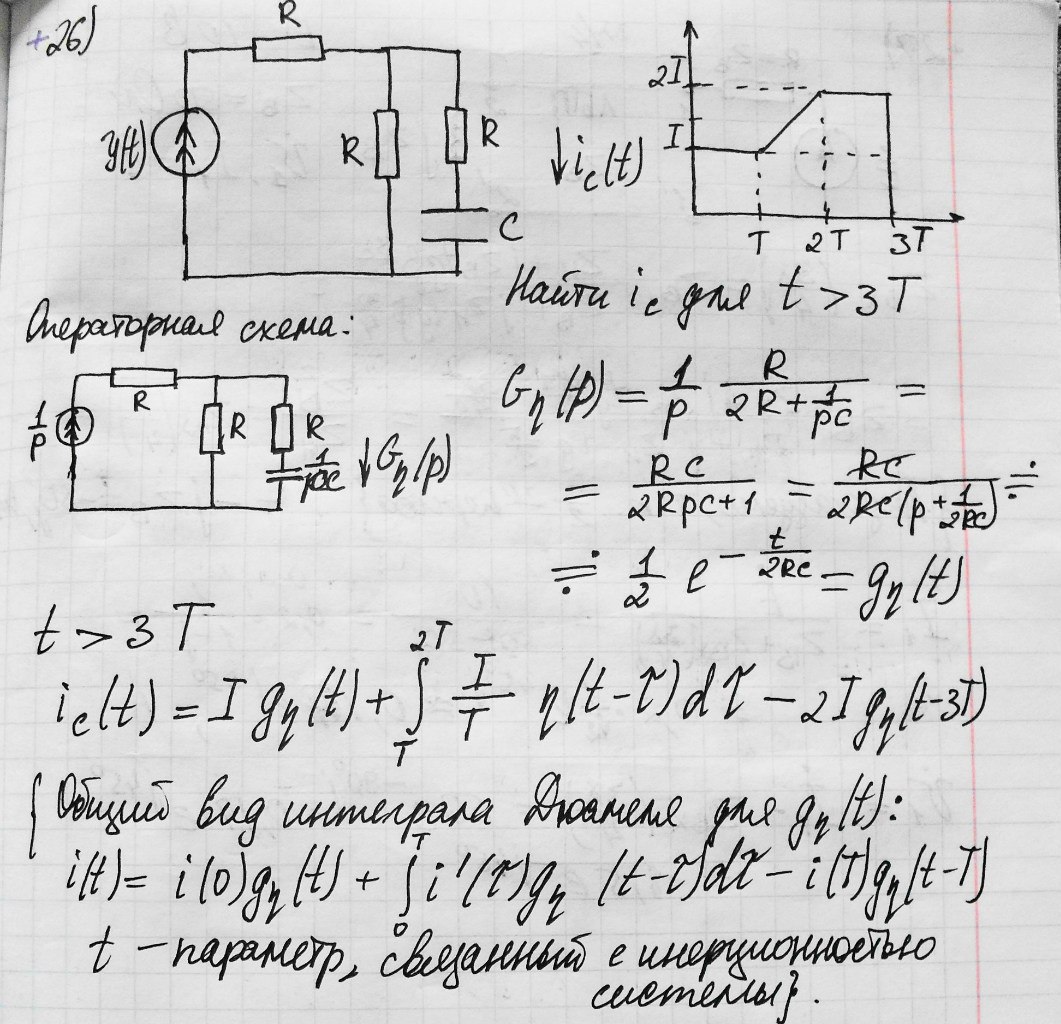 +26)
R
Y(t)
R
R
C
↓ i_c(t)
2I
I
T 2T 3T
Найти i_c для t > 3T
Операторная схема:
R
1/p
R
R
1/pC
↓ G_η(p)
G_η(p) = 1/p R/(2R + 1/pC) =
= RC/(2RpC+1) = RC/(2RC(p + 1/2RC)) ≑
≑ 1/2 e^(-t/2RC) = g_η(t)
t > 3T
i_c(t) = I g_η(t) + ∫_T^2T I/T η(t-τ)dτ - 2I g_η(t-3T)
{ Общий вид интеграла Дюамеля для g_η(t):
i(t) = i(0)g_η(t) + ∫_0^T i'(τ)g_η (t-τ)dτ - i(T)g_η(t-T)
t - параметр, связанный с инерционностью
системы}.